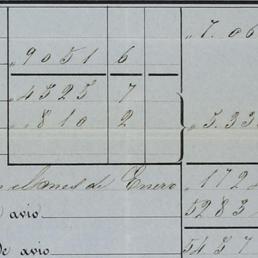 " 7.06
" 9051 6
" 4525 7
" " 810 2
" 5.33
mes de Enero
" 172
avio
5283
54 37
de avio